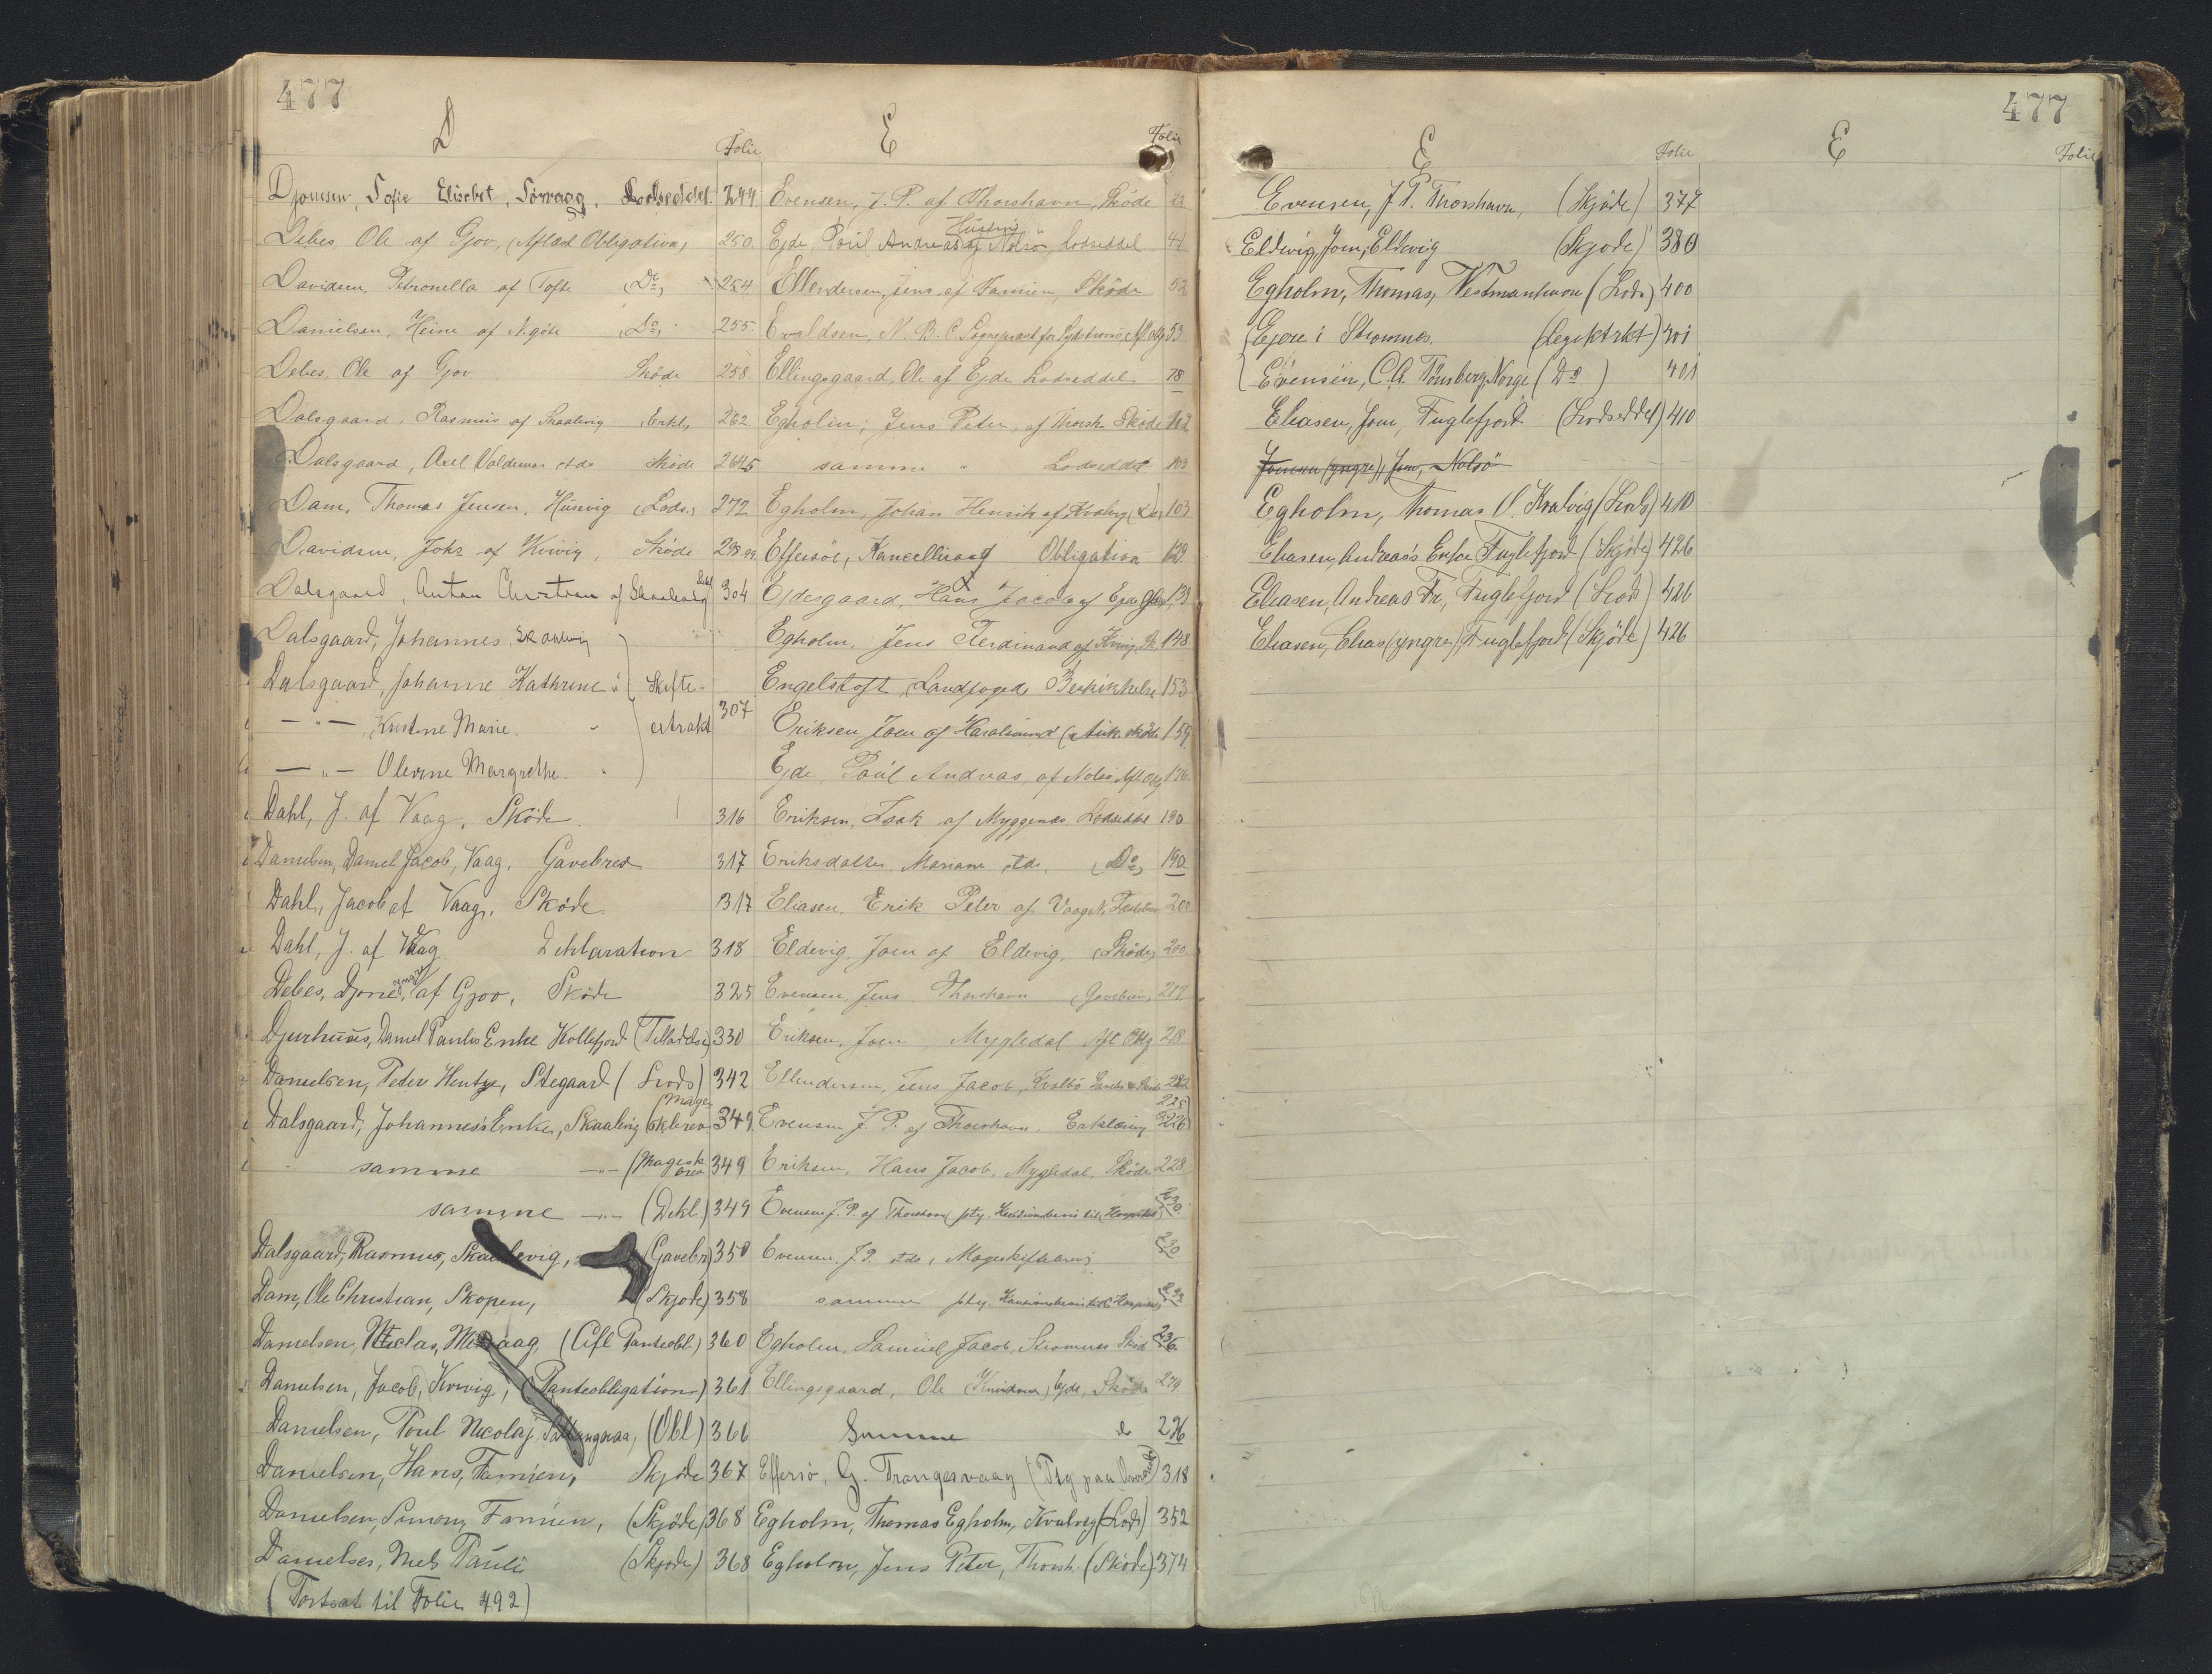 477
D
Folie
Djonesen, Sofie Elisabet, Sörvaag, Lodseddel. 244
Debes, Ole af Gjov, (Aflød Obligation) 250
Davidsen, Petronella af Tofte (Do) 254
Danielsen, Heine af N.göte (Do) 255
Debes, Ole af Gjov Sköde 258
Dalsgaard, Rasmus af Skaaling Erkl, 262
Dalsgaard, Axel Valdemar stds Sköde 264
Dam, Thomas Jensen, Husevig (Lods.) 272
Davidsen, Johs af Kvivig, Sköde 298
Dalsgaard, Anton Christian af 304
Dalsgaard, Johannes
Dalsgaard, Johanne Kathrine Skifte-
— " — Kristine Marie extrakt 307
— " — Olevine Margrethe
Dahl, J. af Vaag, Sköde 316
Danielsen, Daniel Jacob, Vaag, Gavebrev 317
Dahl, Jacob af Vaag, Sköde 317
Dahl, J. af Vaag Deklaration 318
Debes, Djone, yngre af Gjov, Sköde 325
Djurhuus, Daniel Paulis Enke Kollefjord (Tilladelse) 330
Danielsen, Peder Hentze, Stegaard (Lods) 342
Dalsgaard, Johannes's Enke, Skaaling (Mageskbrev 349
samme —"— (Magesk brev 349
samme —"— (Dekl.) 349
Dalsgaard, Rasmus, Skaalevig, (Gavebr) 350
Dam, Ole Christian, Skopen, (Skjøde) 358
Danielsen, Niclas, Midvaag, (Afl Panteobl) 360
Danielsen, Jacob, Kvivig, (Panteobligation) 361
Danielsen, Poul Nicolaj, (Obl) 366
Danielsen, Hans, Famien, Skjøde 367
Danielsen, Simon, Famien, (Skjøde) 368
Danielsen, Niels Pauli (Skjøde) 368
(Fortsat til Folie 492)
E
Folie
Evensen, J. P. af Thorshavn, Sköde
Ejde, Poul Andreas af Nolsö, Lodseddel 44
Ellendersen, Jens af Famien, Sköde 52
Evaldsen, N. B. C. Sognepræst for Sydströmö 53
Ellingsgaard, Ole af Ejde Lodseddel 78
Egholm, Jens Peter, af Thorsh. Sköde 102
samme " Lodseddel 103
Egholm, Johan Henrik af Kvalvig (Do) 103
Effersöe, Kancelliraad Obligation 129
Ejdesgaard, Hans Jacob af Ejde 139
Egholm, Jens Ferdinand af Kvivig, Sk. 148
Engelstoft, Landfoged Beskikkelse 153
Eriksen, Joen af Haralssund (Auk. sköde 159
Ejde, Poul Andreas, af Nolsö Afl. Obg 176
Eriksen, Isak af Myggenæs Lodseddel 190
Eriksdatter, Mariane stds. (Do) 190
Eliasen, Erik Peter af Vaag 200
Eldevig, Joen af Eldevig, (Sköde) 200
Evensen, Jens Thorshavn (Gavebrev) 217
Eriksen, Joen, Mygledal Afl Oblg 218
Ellendersen, Jens Jacob, Kvalbö 222
Evensen J. P. af Thorshavn, Erklæring 225 226
Eriksen, Hans Jacob, Mygledal, Sköde 228
Evensen J. P. af Thorshavn 230
Evensen, J. P. stds, Mageskiftebrev 230
samme
Egholm, Samuel Jacob, Strömnæs Sköd 236
Ellingsgaard, Ole Ejde, Sköde 274
Samme
Effersö, G. Trangesvaag 318
Egholm, Thomas Egholm, Kvalvig (Lods) 352
Egholm, Jens Peter, Thorsh. (Sköde) 374
477
E
Folie
Evensen, J. P. Thorshavn, (Skjøde) 377
Eldevig, Joen, Eldevig (Skjøde) 380
Egholm, Thomas, Vestmanhavn (Lods) 400
Ejere i Strømnæs. 401
Evensen, C.A. Tønsberg, Norge (Do) 401
Eliasen, Joen, Fuglefjord (Lodseddel) 410
Joensen (yngre), Joen, Nolsö
Egholm, Thomas O. Kvalvig (Lods) 410
Eliasen, Andreas's Enke Fuglefjord (Skjøde) 426
Eliasen, Andreas Fr., Fuglefjord (Lods) 426
Eliasen, Elias (yngre) Fuglefjord (Skjøde) 426
E
Folie